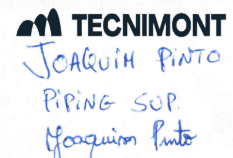 TECNIMONT
JOAQUIM PINTO
PIPING SUP.
Joaquim Pinto